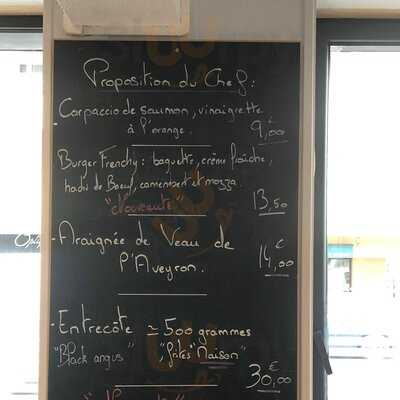 Proposition du Chef:
- Carpaccio de saumon, vinaigrette
à l'orange.
9,00 €
- Burger Frenchy: baguette, crème fraîche,
haché de Boeuf, camembert et mozza.
"Nouveauté"
13,50
- Araignée de Veau de
l'Aveyron.
14,00 €
- Entrecôte ≃ 500 grammes
"Black angus" "frites Maison"
30,00 €